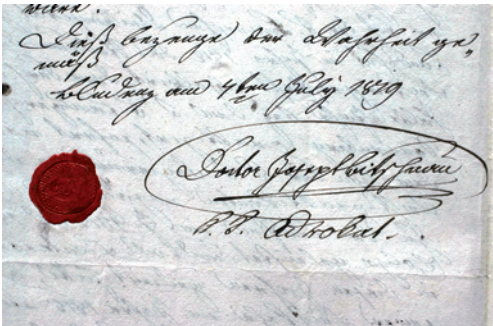 wäre.
Dieß bezeuge der Wahrheit ge„
mäß
Bludenz am 7ten July 1819
Doctor Joseph Bitschnau
k.k. Advokat.